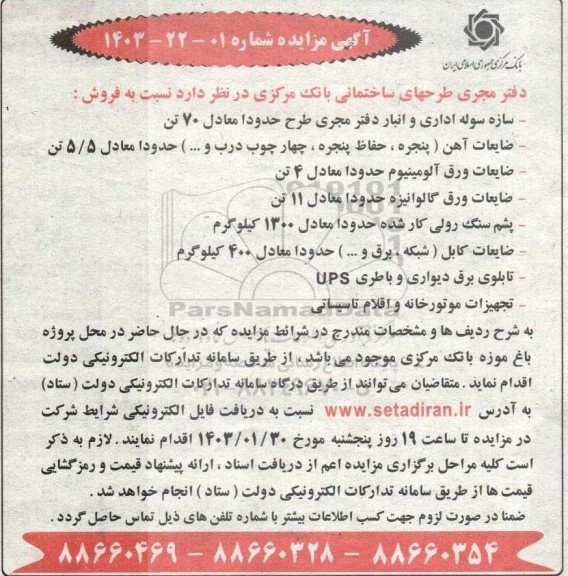 آگهی مزایده شماره ۰۱ – ۲۲ – ۱۴۰۳
بانک مرکزی جمهوری اسلامی ایران
دفتر مجری طرحهای ساختمانی بانک مرکزی در نظر دارد نسبت به فروش :
- سازه سوله اداری و انبار دفتر مجری طرح حدودا معادل ۷۰ تن
- ضایعات آهن ( پنجره ، حفاظ پنجره ، چهار چوب درب و ... ) حدودا معادل ۵/۵ تن
- ضایعات ورق آلومینیوم حدودا معادل ۴ تن
- ضایعات ورق گالوانیزه حدودا معادل ۱۱ تن
- پشم سنگ رولی کار شده حدودا معادل ۱۳۰۰ کیلوگرم
- ضایعات کابل ( شبکه ، برق و ... ) حدودا معادل ۴۰۰ کیلوگرم
- تابلوی برق دیواری و باطری UPS
- تجهیزات موتورخانه و اقلام تاسیساتی
ParsNamadData
به شرح ردیف ها و مشخصات مندرج در شرائط مزایده که در حال حاضر در محل پروژه
باغ موزه بانک مرکزی موجود می باشد ، از طریق سامانه تدارکات الکترونیکی دولت
اقدام نماید . متقاضیان می توانند از طریق درگاه سامانه تدارکات الکترونیکی دولت ( ستاد )
به آدرس www.setadiran.ir نسبت به دریافت فایل الکترونیکی شرایط شرکت
در مزایده تا ساعت ۱۹ روز پنجشنبه مورخ ۱۴۰۳/۰۱/۳۰ اقدام نمایند . لازم به ذکر
است کلیه مراحل برگزاری مزایده اعم از دریافت اسناد ، ارائه پیشنهاد قیمت و رمزگشایی
قیمت ها از طریق سامانه تدارکات الکترونیکی دولت ( ستاد ) انجام خواهد شد .
ضمنا در صورت لزوم جهت کسب اطلاعات بیشتر با شماره تلفن های ذیل تماس حاصل گردد .
۸۸۶۶۰۳۵۴ – ۸۸۶۶۰۳۲۸ – ۸۸۶۶۰۴۶۹